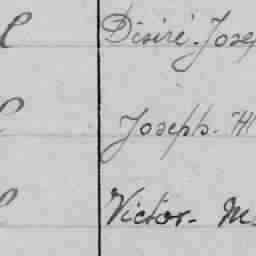 Désiré. Jose
Joseph. H
Victor. M